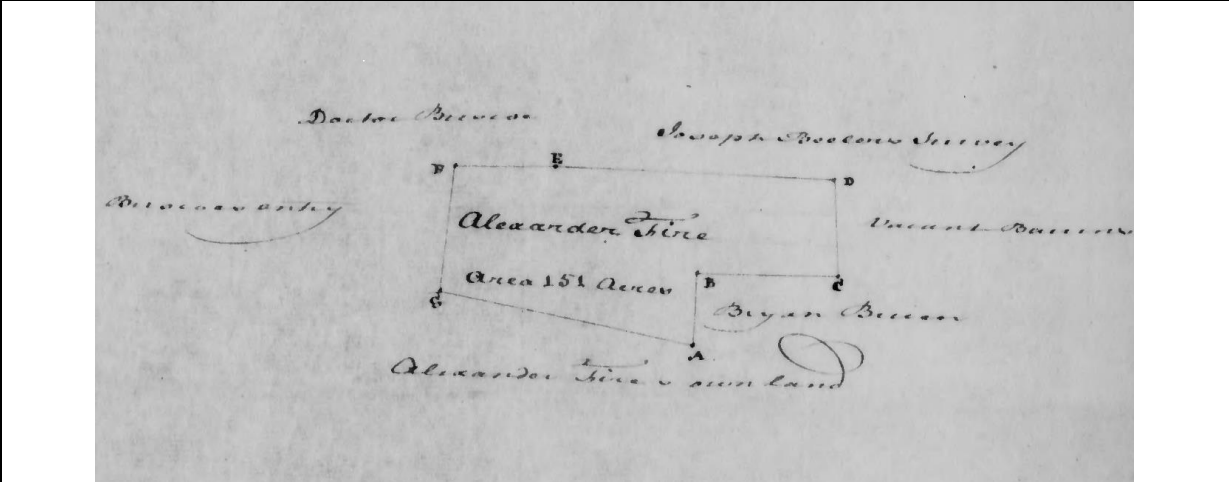 Doctor Briscoe
Joseph Boolows Survey
F E D
Briscoes entry
Alexander Fire
Vacant Barrens
Area 151 Acres
B C
G
Bryan Bruen
A
Alexander Fire s own land